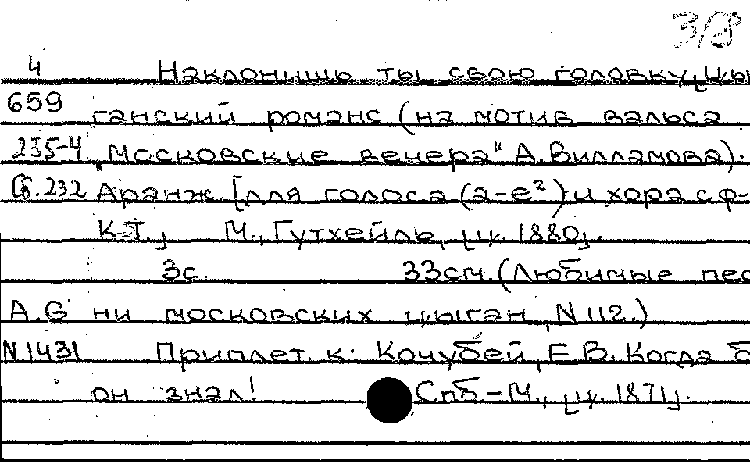 3/8
4 Наклонишь ты свою головку, Цы
659 ганский романс (на мотив вальса
235-4 "Московские вечера" А. Вилламова).
Сб.232 Аранж. [для голоса (a-e²) и хора с ф-
К-Т., М., Гутхейль, [ц. 1880].
3с. 33см. (Любимые пес
А.G ни московских цыган, N 112.)
N 1431 Приплет. к: Кочубей, Е.В. Когда б
он знал! Спб.-М., [ц. 1871].